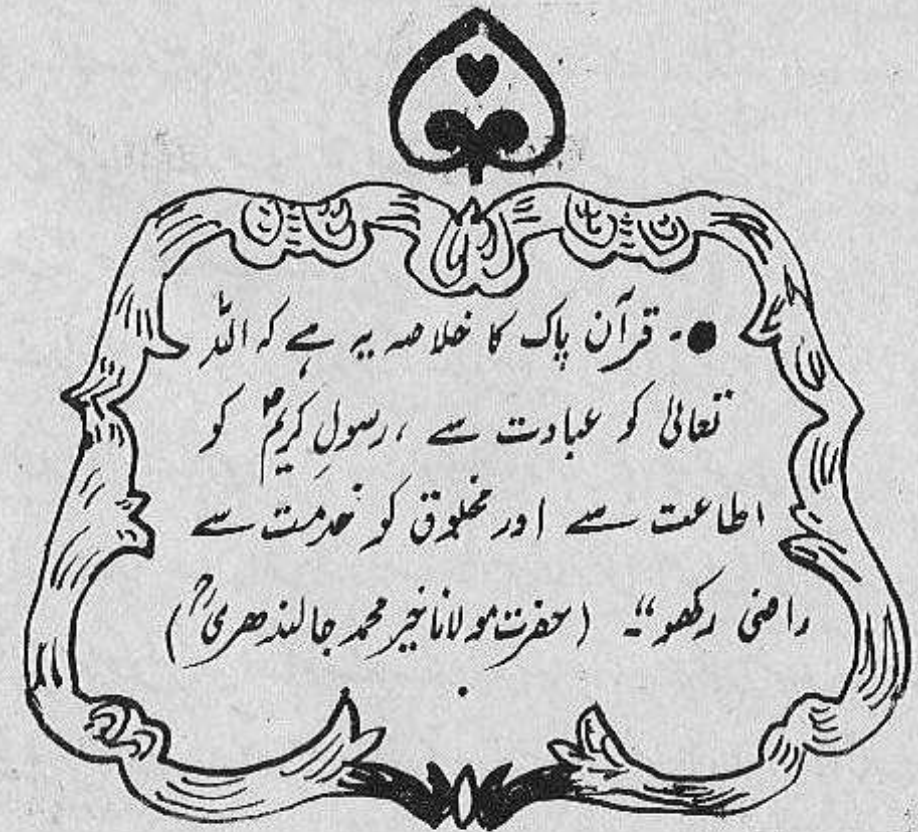 ●۔ قرآن پاک کا خلاصہ یہ ہے کہ اللہ
تعالیٰ کو عبادت سے ، رسولِ کریمؐ کو
اطاعت سے اور مخلوق کو خدمت سے
راضی رکھو“۔ (حضرت مولانا خیر محمد جالندھریؒ)